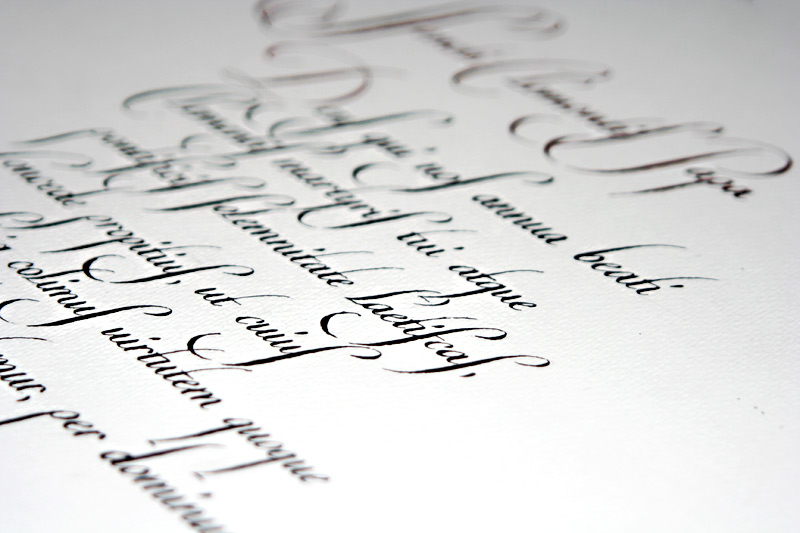 Sancti Clementis Papa
Deus qui nos annua beati
Clementis martyris tui atque
pontificis solemnitate laetificas,
concede propitius, ut cuius
colimus uirtutem quoque
per dominu